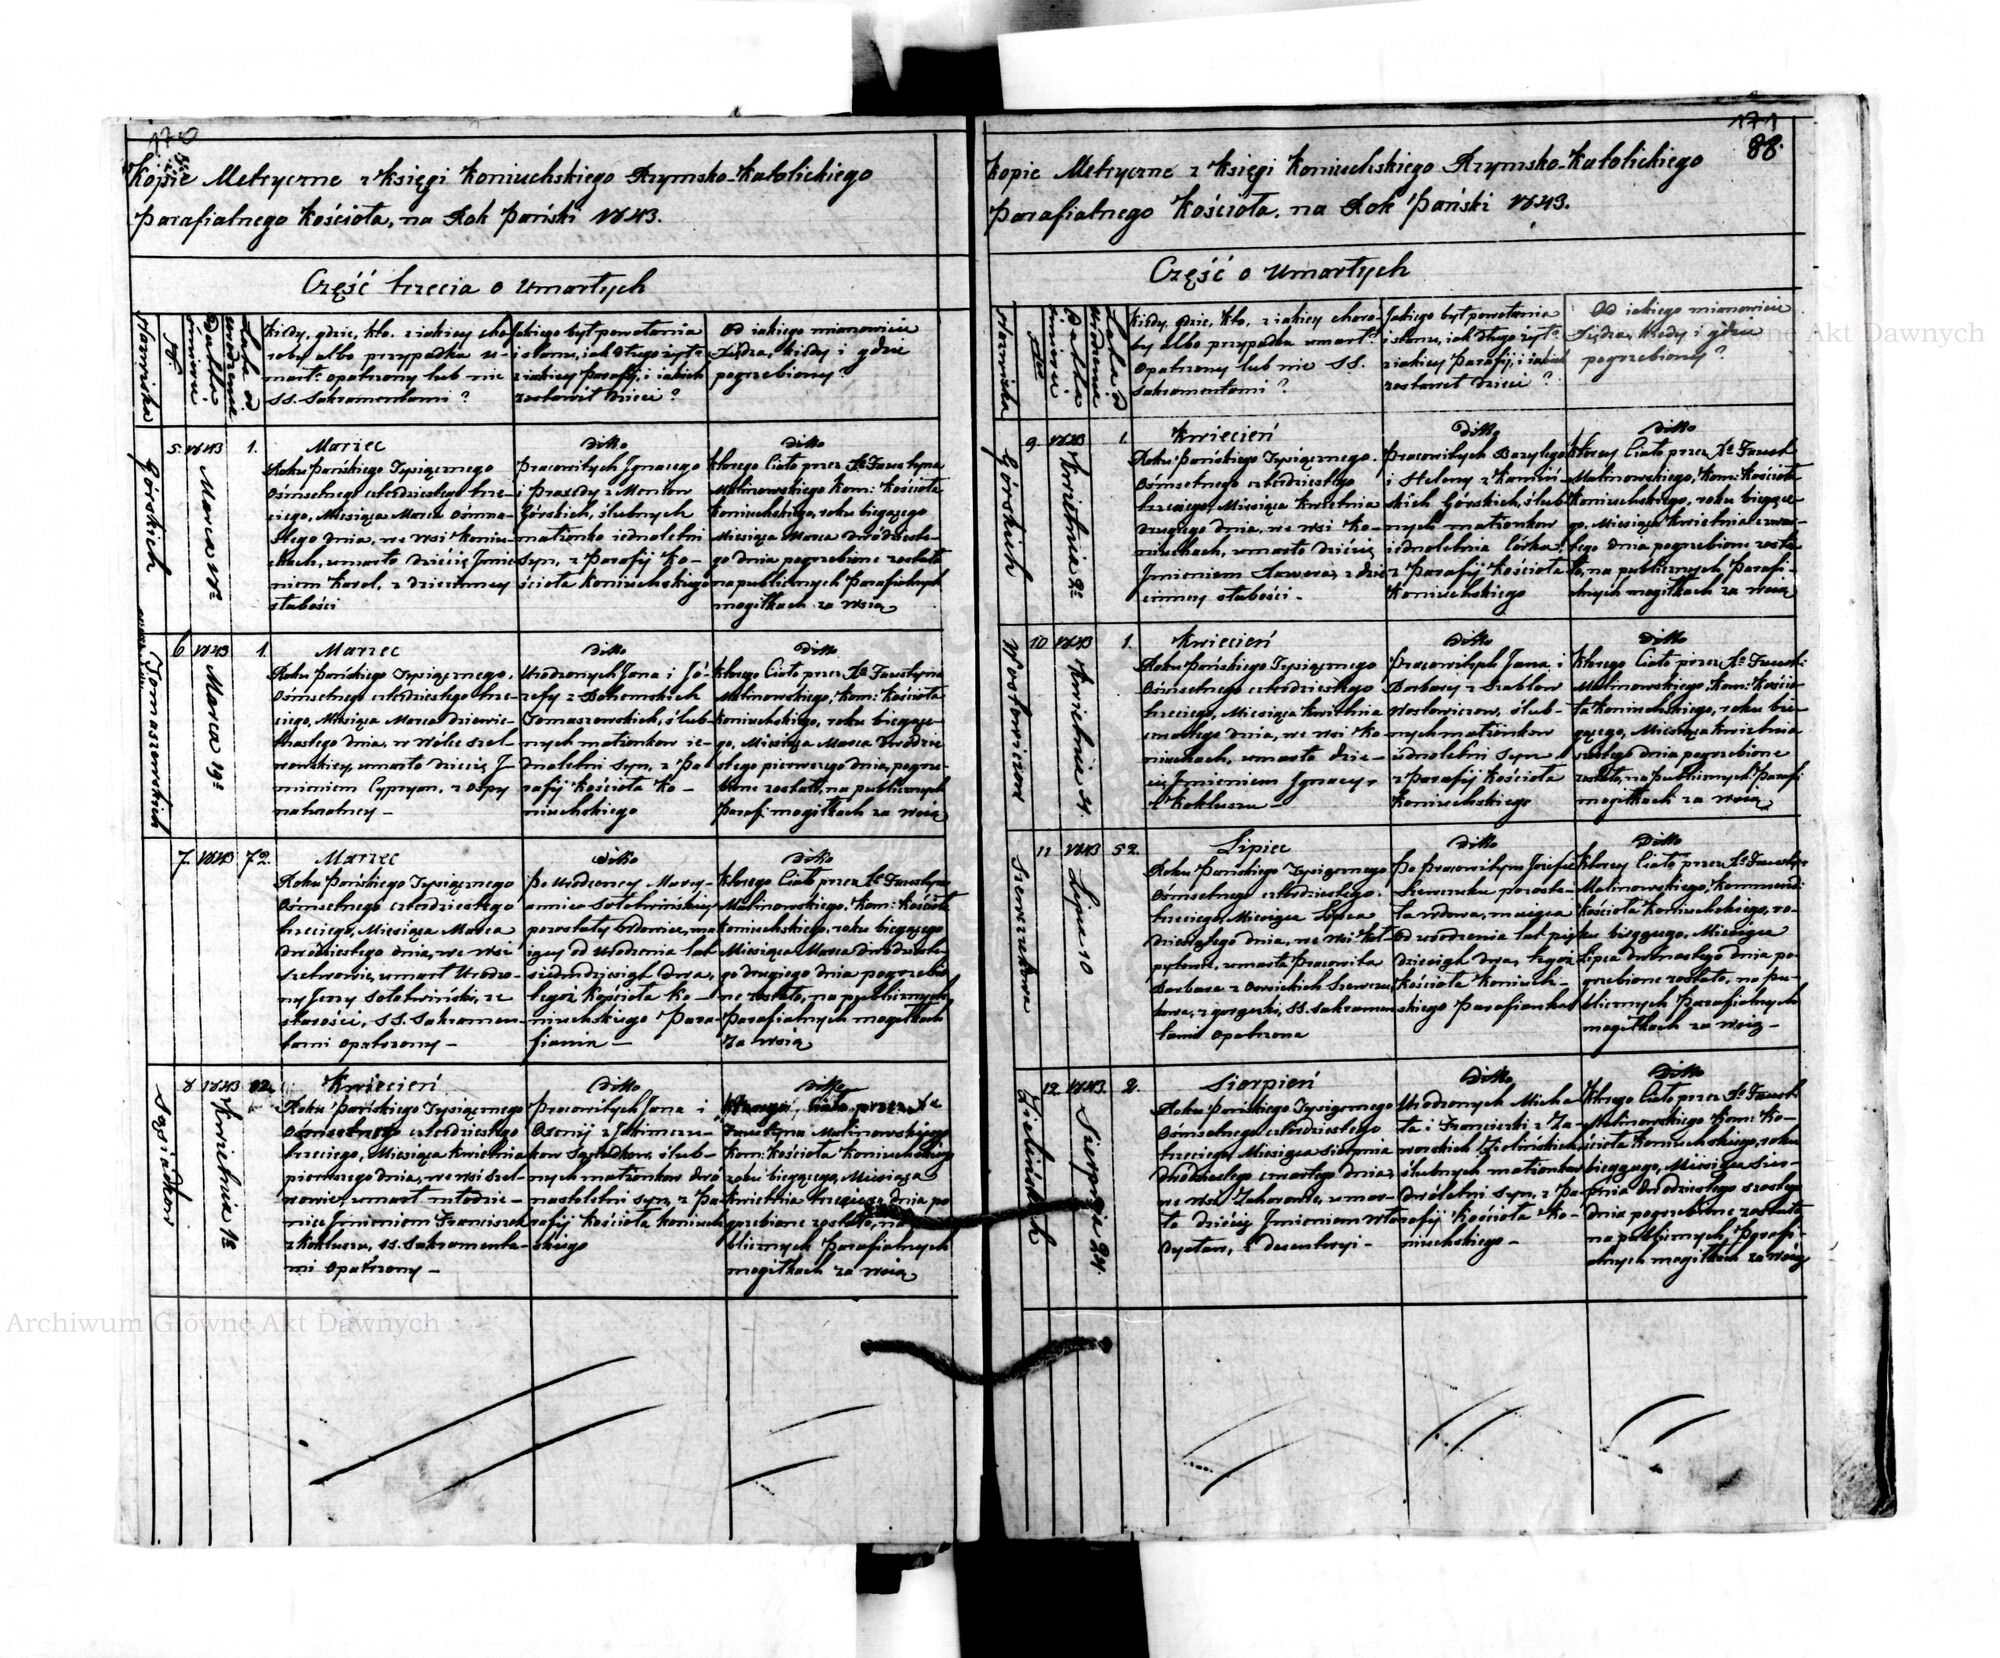 170
Kopie Metryczne z Księgi Koniuchskiego Rzymsko-Katolickiego
Parafialnego Kościoła, na Rok Pański 1843.
Część trzecia o Umarłych
Nazwiska
№
Lata od urodzenia
Kiedy, gdzie, kto, z jakiey cho-
roby albo przypadku u-
marł: opatrzony lub nie
SS. Sakramentami?
Jakiego był powołania
i stanu, iak długo żył:
z iakiey Parafij, i iakich
zostawił dzieci?
Od iakiego mianowicie
Xiędza, kiedy i gdzie
pogrzebiony?
Górskich
5.
1843
Marca 18
1.
Marzec
Roku Pańskiego Tysiącznego
Ośmsetnego czterdziestego trze-
ciego, Miesiąca Marca ośmna-
stego dnia, we wsi Koniu-
chach, umarło dziecię Jmie-
niem Karol, z dziecinney
słabości
ditto
Pracowitych Jgnacego
i Praxedy z
Górskich, ślubnych
małżonko iednoletni
Syn, z Parafij Ko-
ścioła Koniuchskiego
ditto
którego Ciało przez Xa Faustyna
Malinowskiego Kom: Kościoła
Koniuchskiego, roku biegącego
Miesiąca Marca dwódzieste-
go dnia pogrzebione zostało
na publicznych Parafialnych
mogiłkach za wsią
Tomaszewskich
6
1843
Marca 19
1.
Marzec
Roku Pańskiego Tysiącznego,
Ośmsetnego czterdziestego trze-
ciego, Miesiąca Marca dziewie-
tnastego dnia, w Wólce Szel-
wowskiey, umarło dziecię J-
mieniem Cypryan, z ospy
naturalney -
ditto
Urodzonych Jana i Jó-
zefy z
Tomaszewskich, ślub-
nych małżonkow ie-
dnoletni syn, z Pa-
rafij Kościoła Ko-
niuchskiego
ditto
którego Ciało przez Xa Faustyna
Malinowskiego, Kom: Kościoła
Koniuchskiego, roku biegące-
go, Miesiąca Marca dwódzie-
stego pierwszego dnia, pogrze-
bione zostało, na publicznych
Paraf: mogiłkach za wsią
7.
1843
72.
Marzec
Roku Pańskiego Tysiącznego
Ośmsetnego czterdziestego
trzeciego, Miesiąca Marca
dwódziestego dnia, we wsi
Szelwowie, umarł Urodzo-
ny Jerzy Sołotwiński, ze
starości, SS. Sakramen-
tami opatrzony -
ditto
Po Urodzoney Mary-
annie Sołotwińskiey
pozostały wdowiec, ma-
iący od Urodzenia lat
siedmdziesiąt dwa,
tegoż Kościoła Ko-
niuchskiego Para-
fianin -
ditto
którego Ciało przez Xa Faustyna
Malinowskiego, Kom: Kościoła
Koniuchskiego, roku biegącego
Miesiąca Marca dwódzieste-
go drugiego dnia pogrzebio-
ne zostało, na publicznych
Parafialnych mogiłkach
za wsią
Sąsiadkow
8
1843
Kwietnia 1
12.
Kwiecień
Roku Pańskiego Tysiącznego
Ośmsetnego czterdziestego
trzeciego, Miesiąca Kwietnia
pierwszego dnia, we wsi Szel-
wowie, umarł młodzie-
niec Jmieniem Franciszek
z Kokluszu, SS. Sakramenta-
mi opatrzony -
ditto
Pracowitych Jana i
kow Sąsiadkow, ślub-
nych małżonkow dwó-
nastoletni syn, z Pa-
rafij Kościoła Koniuch-
skiego
ditto
którego Ciało przez Xa
Faustyna Malinowskiego
Kom: Kościoła Koniuchskiego
roku biegącego, Miesiąca
Kwietnia trzeciego dnia po-
grzebione zostało, na
blicznych Parafialnych
mogiłkach za wsią
171
88.
Kopie Metryczne z Księgi Koniuchskiego Rzymsko-Katolickiego
Parafialnego Kościoła, na Rok Pański 1843.
Część o Umarłych
Nazwiska
Kiedy, gdzie, kto, z iakiey choro-
by albo przypadku umarł:
opatrzony lub nie SS.
Sakramentami?
Jakiego był powołania
i stanu, iak długo żył:
z iakiey Parafij, i iakich
zostawił dzieci?
Od iakiego mianowicie
Xiędza, kiedy i gdzie
pogrzebiony?
Górskich
9.
1843
Kwietnia 2
1.
Kwiecień
Roku Pańskiego Tysiącznego.
Ośmsetnego czterdziestego
trzeciego, Miesiąca Kwietnia
drugiego dnia, we wsi Ko-
niuchach, umarło dziecię
Jmieniem Xawera, z dzie-
cinney słabości -
ditto
Pracowitych Bazylego
i Heleny z Kamiń-
skich Górskich, ślub-
nych małżonkow
iednoletnia Córka,
z Parafij Kościoła
Koniuchskiego
ditto
którey Ciało przez Xa Faust:
Malinowskiego, Kom: Kościoła
Koniuchskiego, roku biegące-
go, Miesiąca Kwietnia czwar-
tego dnia pogrzebione zosta-
ło, na publicznych Parafi-
alnych mogiłkach za wsią
Wosłowiczow
10
1843
Kwietnia 4.
1.
Kwiecień
Roku Pańskiego Tysiącznego
Ośmsetnego czterdziestego
trzeciego, Miesiąca Kwietnia
czwartego dnia, we wsi Ko-
niuchach, umarło dzie-
cię Jmieniem Jgnacy,
z Kokluszu -
ditto
Pracowitych Jana i
Barbary z Szablow
Wosłowiczow, ślub-
nych małżonkow
iednoletni syn
z Parafij Kościoła
Koniuchskiego
ditto
którego Ciało przez Xa Faust:
Malinowskiego, Kom: Kościo-
ła Koniuchskiego, roku bie-
gącego, Miesiąca Kwietnia
szóstego dnia pogrzebione
zostało, na publicznych Parafi:
mogiłkach za wsią
Szewczukowa
11
1843
Lipca 10
52.
Lipiec
Roku Pańskiego Tysiącznego
Ośmsetnego czterdziestego.
trzeciego, Miesiąca Lipca
dziesiątego dnia, we wsi Koł-
pytowie, umarła Pracowita
Barbara z Szewczu-
kowa, z gorączki, SS. Sakramen-
tami opatrzona
ditto
Po Pracowitym Jozefie
Szewczuku pozosta-
ła wdowa, maiąca
od urodzenia lat pięć-
dziesiąt dwa, tegoż
Kościoła Koniuch-
skiego Parafianka
ditto
którey Ciało przez Xa Faustyna
Malinowskiego, Kommend:
Kościoła Koniuchskiego, ro-
ku biegącego, Miesiąca
Lipca dwónastego dnia po-
grzebione zostało, na pu-
blicznych Parafialnych
mogiłkach za wsią -
Zielińskich
12.
1843.
Sierpnia 24.
2.
Sierpień
Roku Pańskiego Tysiącznego
Ośmsetnego czterdziestego
trzeciego, Miesiąca Sierpnia
dwódziestego czwartego dnia,
we wsi, umar-
ło dziécię Jmieniem Wła-
dysław, z desenteryi -
ditto
Urodzonych Micha-
ła i Franciszki z Za-
worskich Zielińskich
ślubnych małżonkow
dwóletni syn, z Pa-
rafij Kościoła Ko-
niuchskiego -
ditto
którego Ciało przez Xa Faust:
Malinowskiego Kom: Ko-
ścioła Koniuchskiego, roku
biegącego, Miesiąca Sier-
pnia dwódziestego szostego
dnia pogrzebione zostało
na publicznych Parafi-
alnych mogiłkach za wsią
Archiwum Główne Akt Dawnych
Archiwum Główne Akt Dawnych